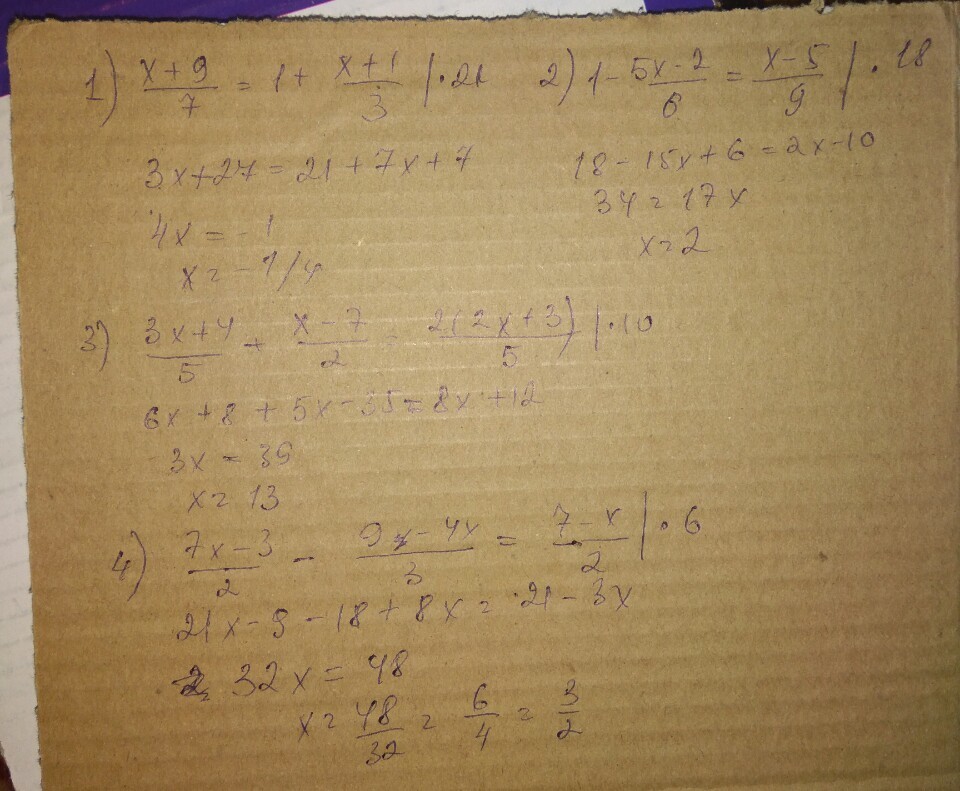 1) (x+9)/7 = 1 + (x+1)/3 | ·21
3x+27 = 21+7x+7
4x = -1
x = -1/4
2) 1 - (5x-2)/6 = (x-5)/9 | ·18
18-15x+6 = 2x-10
34 = 17x
x = 2
3) (3x+4)/5 + (x-7)/2 = 2(2x+3)/5 | ·10
6x+8+5x-35 = 8x+12
3x = 39
x = 13
4) (7x-3)/2 - (9-4x)/3 = (7-x)/2 | ·6
21x-9-18+8x = 21-3x
32x = 48
x = 48/32 = 6/4 = 3/2